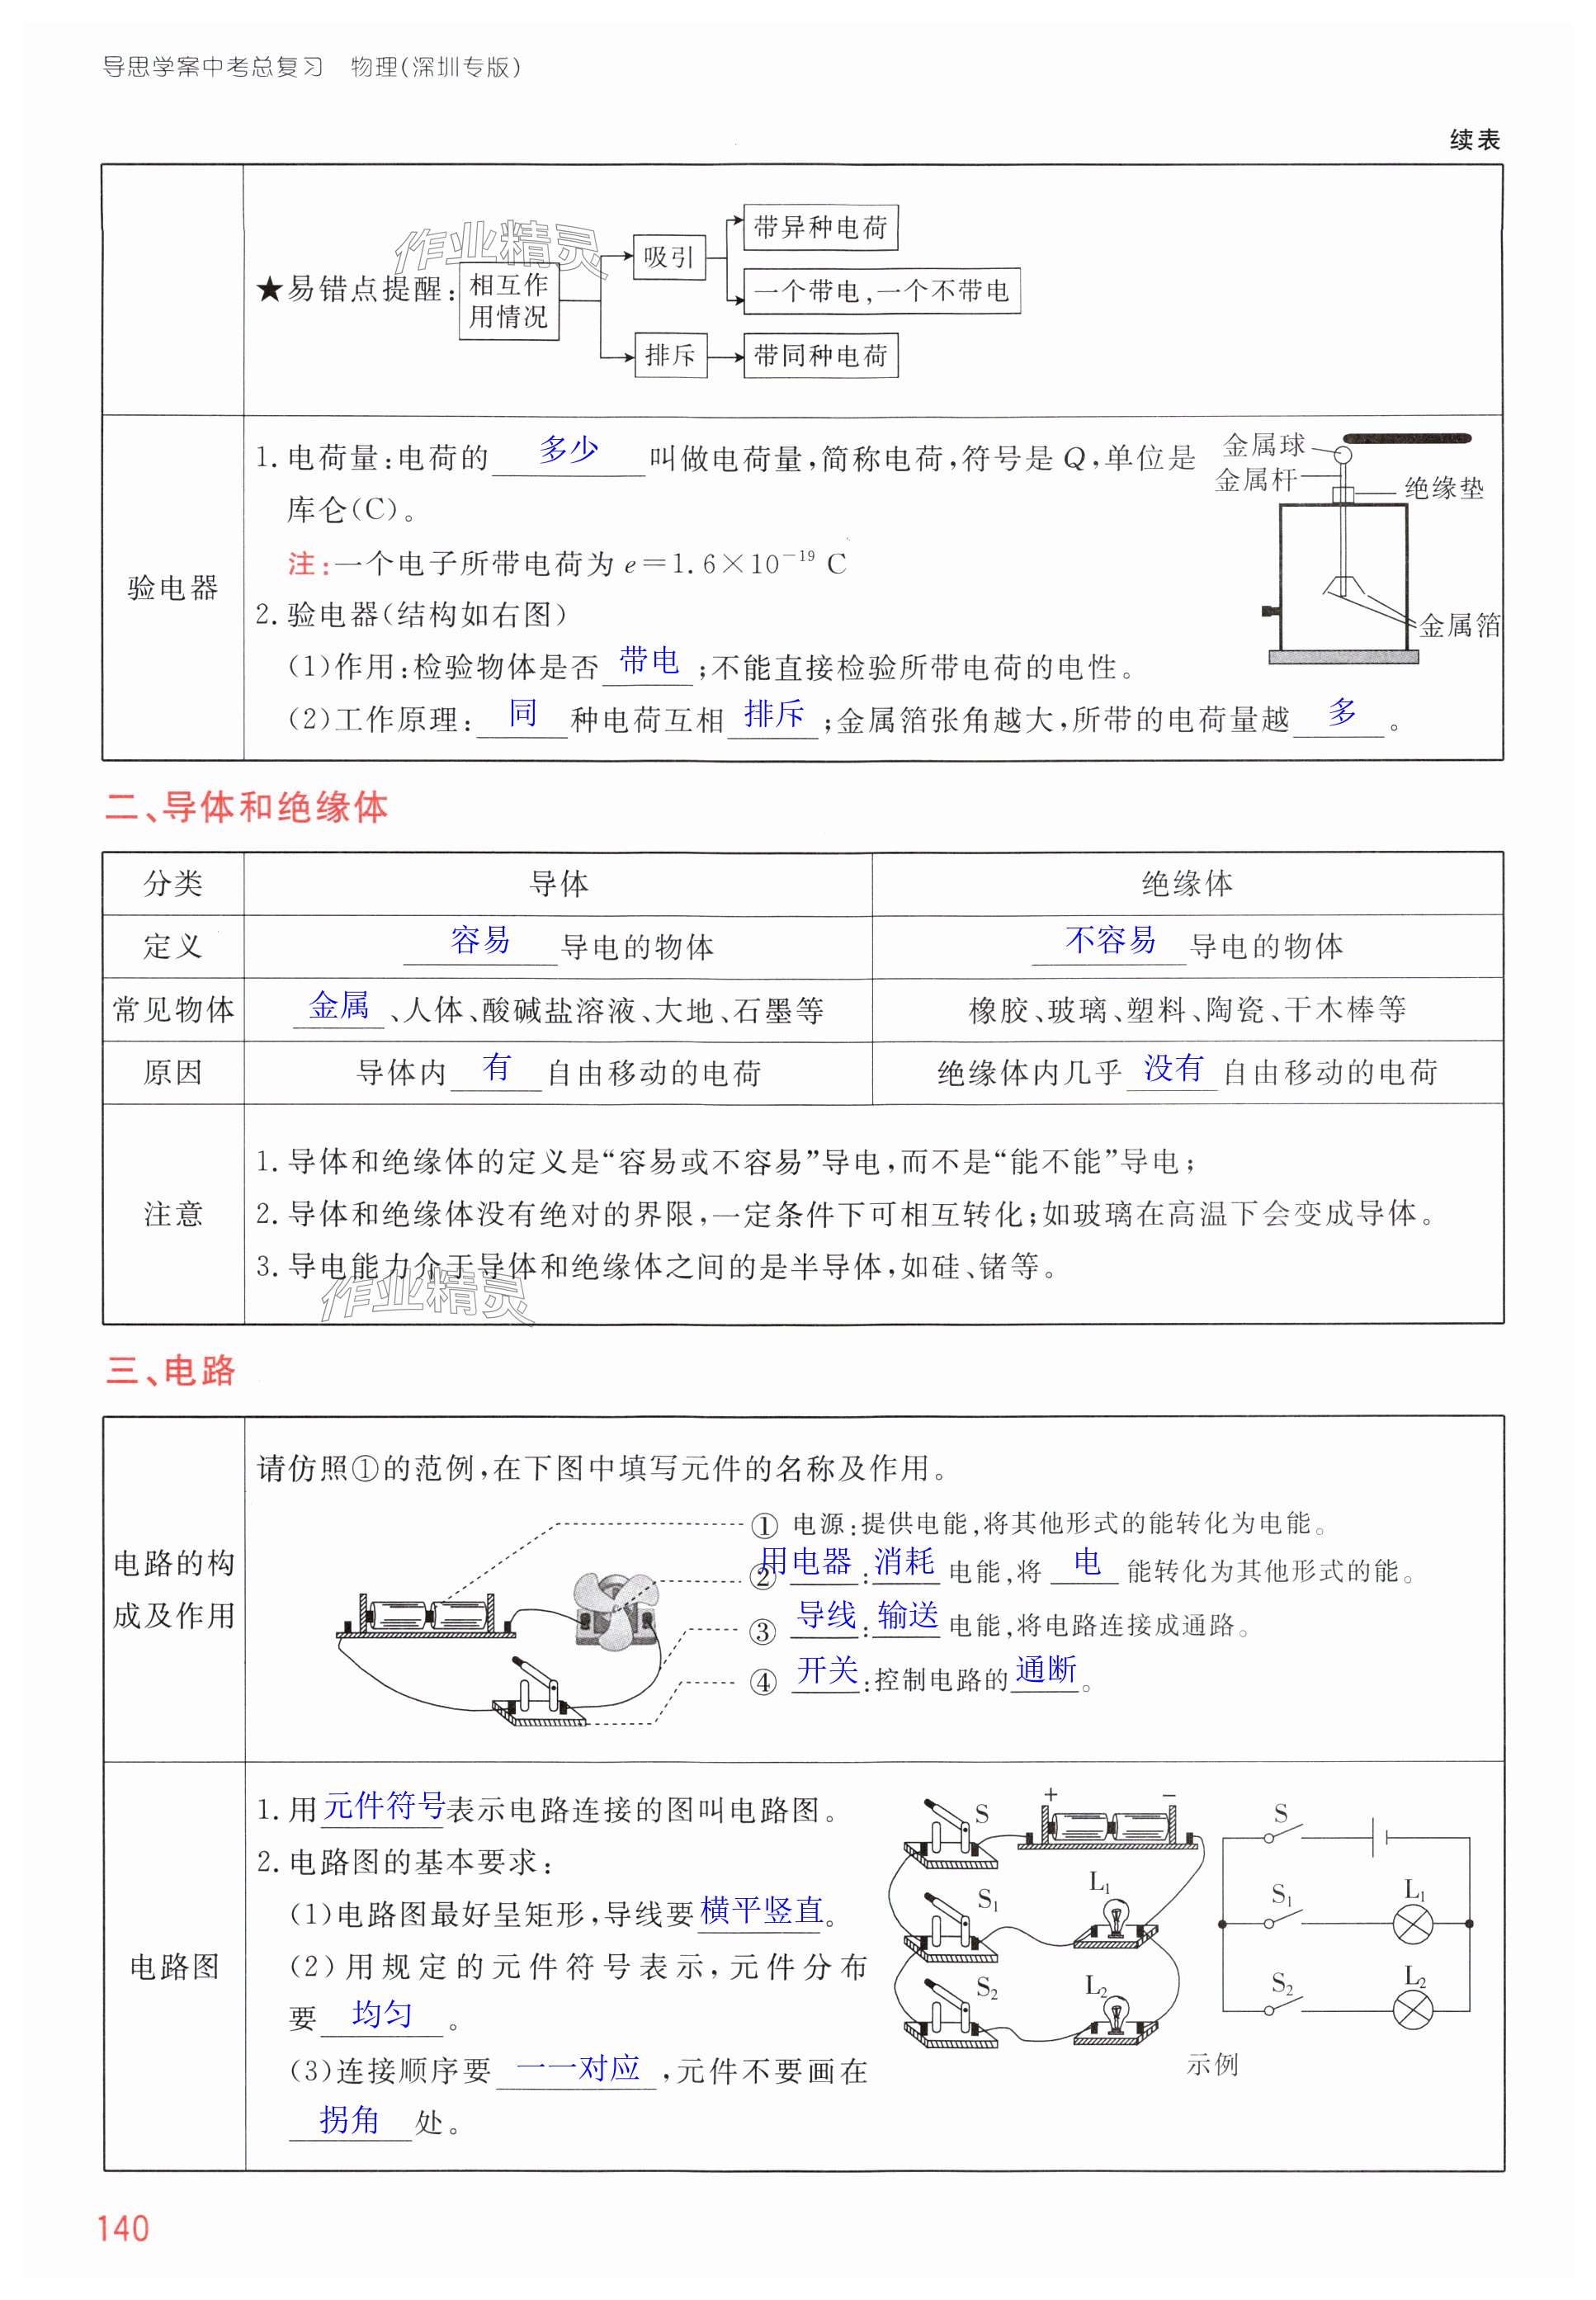 导思学案中考总复习 物理(深圳专版)
续表
作业精灵
★易错点提醒:
相互作
用情况
吸引
带异种电荷
一个带电,一个不带电
排斥
带同种电荷
验电器
1. 电荷量:电荷的 多少 叫做电荷量,简称电荷,符号是 Q,单位是
库仑(C)。
注:一个电子所带电荷为 e=1.6×10⁻¹⁹ C
2. 验电器(结构如右图)
(1)作用:检验物体是否 带电 ;不能直接检验所带电荷的电性。
(2)工作原理: 同 种电荷互相 排斥 ;金属箔张角越大,所带的电荷量越 多 。
金属球
金属杆
绝缘垫
金属箔
二、导体和绝缘体
分类 导体 绝缘体
定义 容易 导电的物体 不容易 导电的物体
常见物体 金属 、人体、酸碱盐溶液、大地、石墨等 橡胶、玻璃、塑料、陶瓷、干木棒等
原因 导体内 有 自由移动的电荷 绝缘体内几乎 没有 自由移动的电荷
注意
1. 导体和绝缘体的定义是“容易或不容易”导电,而不是“能不能”导电;
2. 导体和绝缘体没有绝对的界限,一定条件下可相互转化;如玻璃在高温下会变成导体。
3. 导电能力介于导体和绝缘体之间的是半导体,如硅、锗等。
作业精灵
三、电路
电路的构
成及作用
请仿照①的范例,在下图中填写元件的名称及作用。
① 电源:提供电能,将其他形式的能转化为电能。
② 用电器:消耗 电能,将 电 能转化为其他形式的能。
③ 导线:输送 电能,将电路连接成通路。
④ 开关:控制电路的 通断 。
电路图
1. 用 元件符号 表示电路连接的图叫电路图。
2. 电路图的基本要求:
(1)电路图最好呈矩形,导线要 横平竖直 。
(2)用规定的元件符号表示,元件分布
要 均匀 。
(3)连接顺序要 一一对应 ,元件不要画在
拐角 处。
S + −
S₁ L₁
S₂ L₂
S
S₁ L₁
S₂ L₂
示例
140